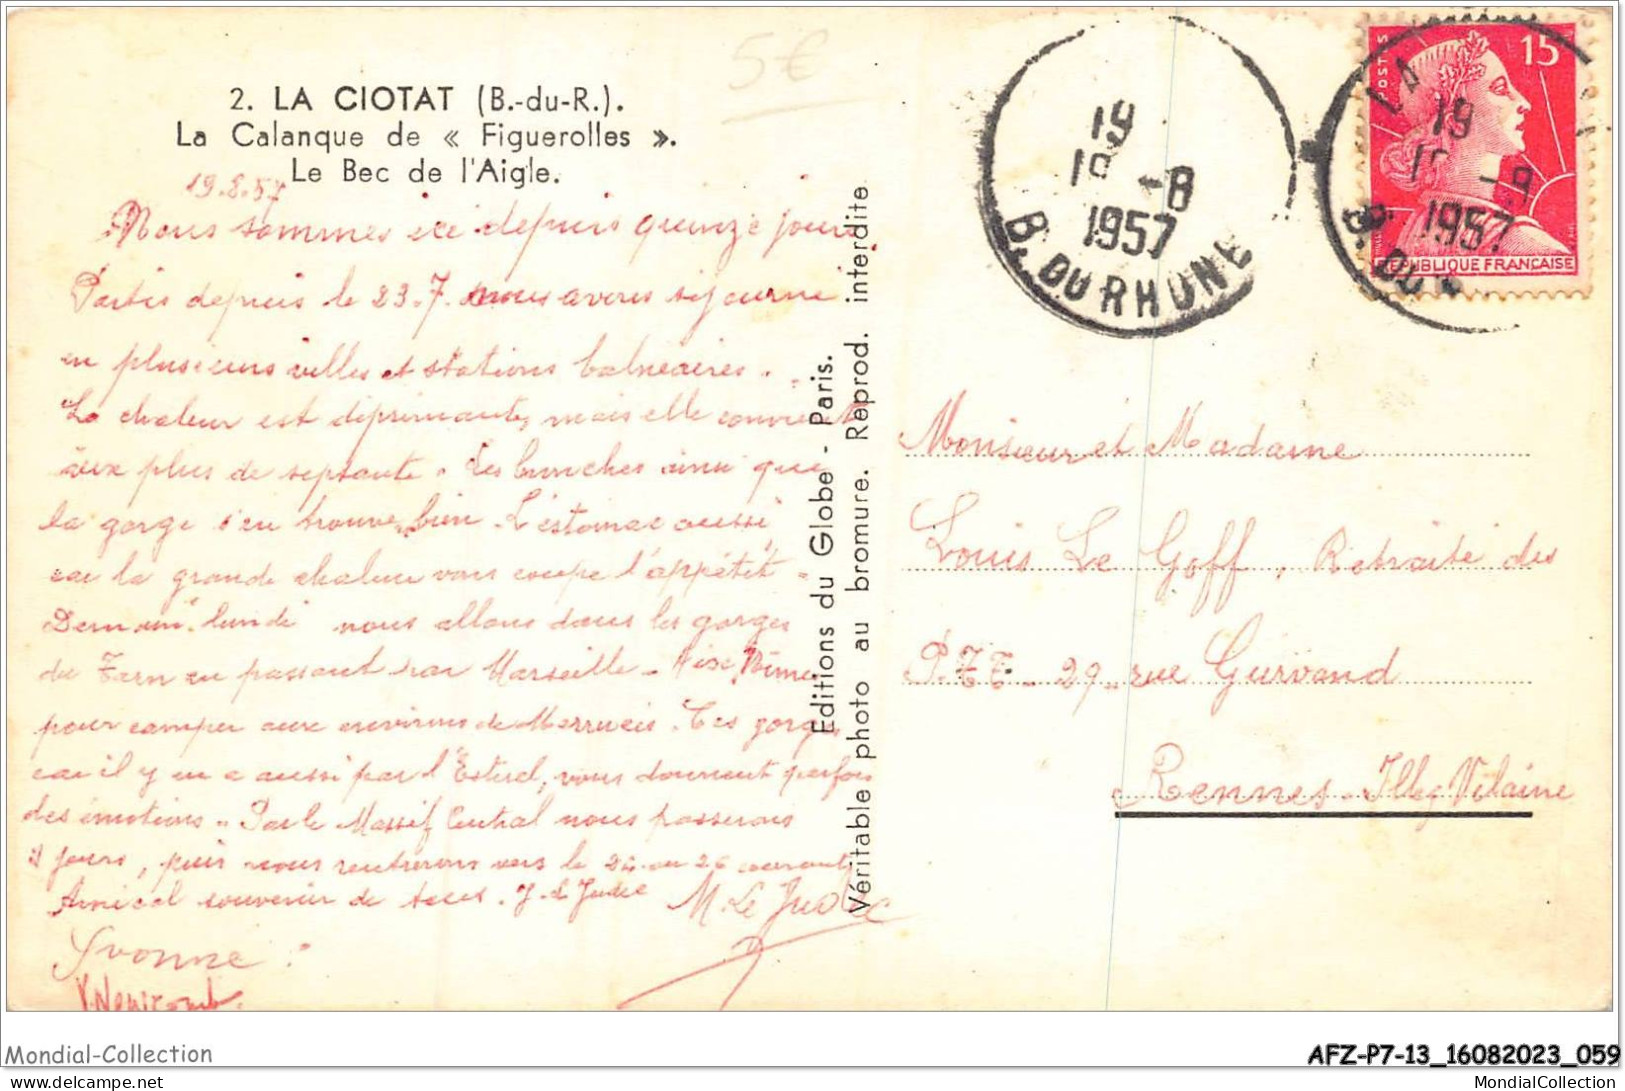 5€
2. LA CIOTAT (B.-du-R.).
La Calanque de « Figuerolles ».
Le Bec de l'Aigle.
19.8.57
Nous sommes ici depuis quinze jours
Partis depuis le 23.7. nous avons séjourné
en plusieurs villes et stations balnéaires.
La chaleur est déprimante, mais elle convient
aux plus de septante. Les bronches ainsi que
la gorge s'en trouve bien. L'estomac aussi
car la grande chaleur vous coupe l'appétit.
Demain lundi nous allons dans les gorges
du Tarn en passant par Marseille - Nîmes
pour camper aux environs de Meyrueis. Ces gorges
car il y en a aussi par l'Esterel, vous donnent parfois
des émotions. Par le Massif Central nous passerons
jours, puis nous rentrerons vers le 24 ou 26 courant
Amical souvenir de tous. Y. Le Judec M. Le Judec
Yvonne
Editions du Globe - Paris.
Véritable photo au bromure. Reprod. interdite
19
-8
1957
B. DU RHONE
LA
19
1957
B. DU
POSTES
15
REPUBLIQUE FRANCAISE
Monsieur et Madame
Louis Le Goff, Retraité des
P.T.T - 29, rue Gurvand
Rennes - Ille et Vilaine
Mondial-Collection
AFZ-P7-13_16082023_059
delcampe.net
MondialCollection